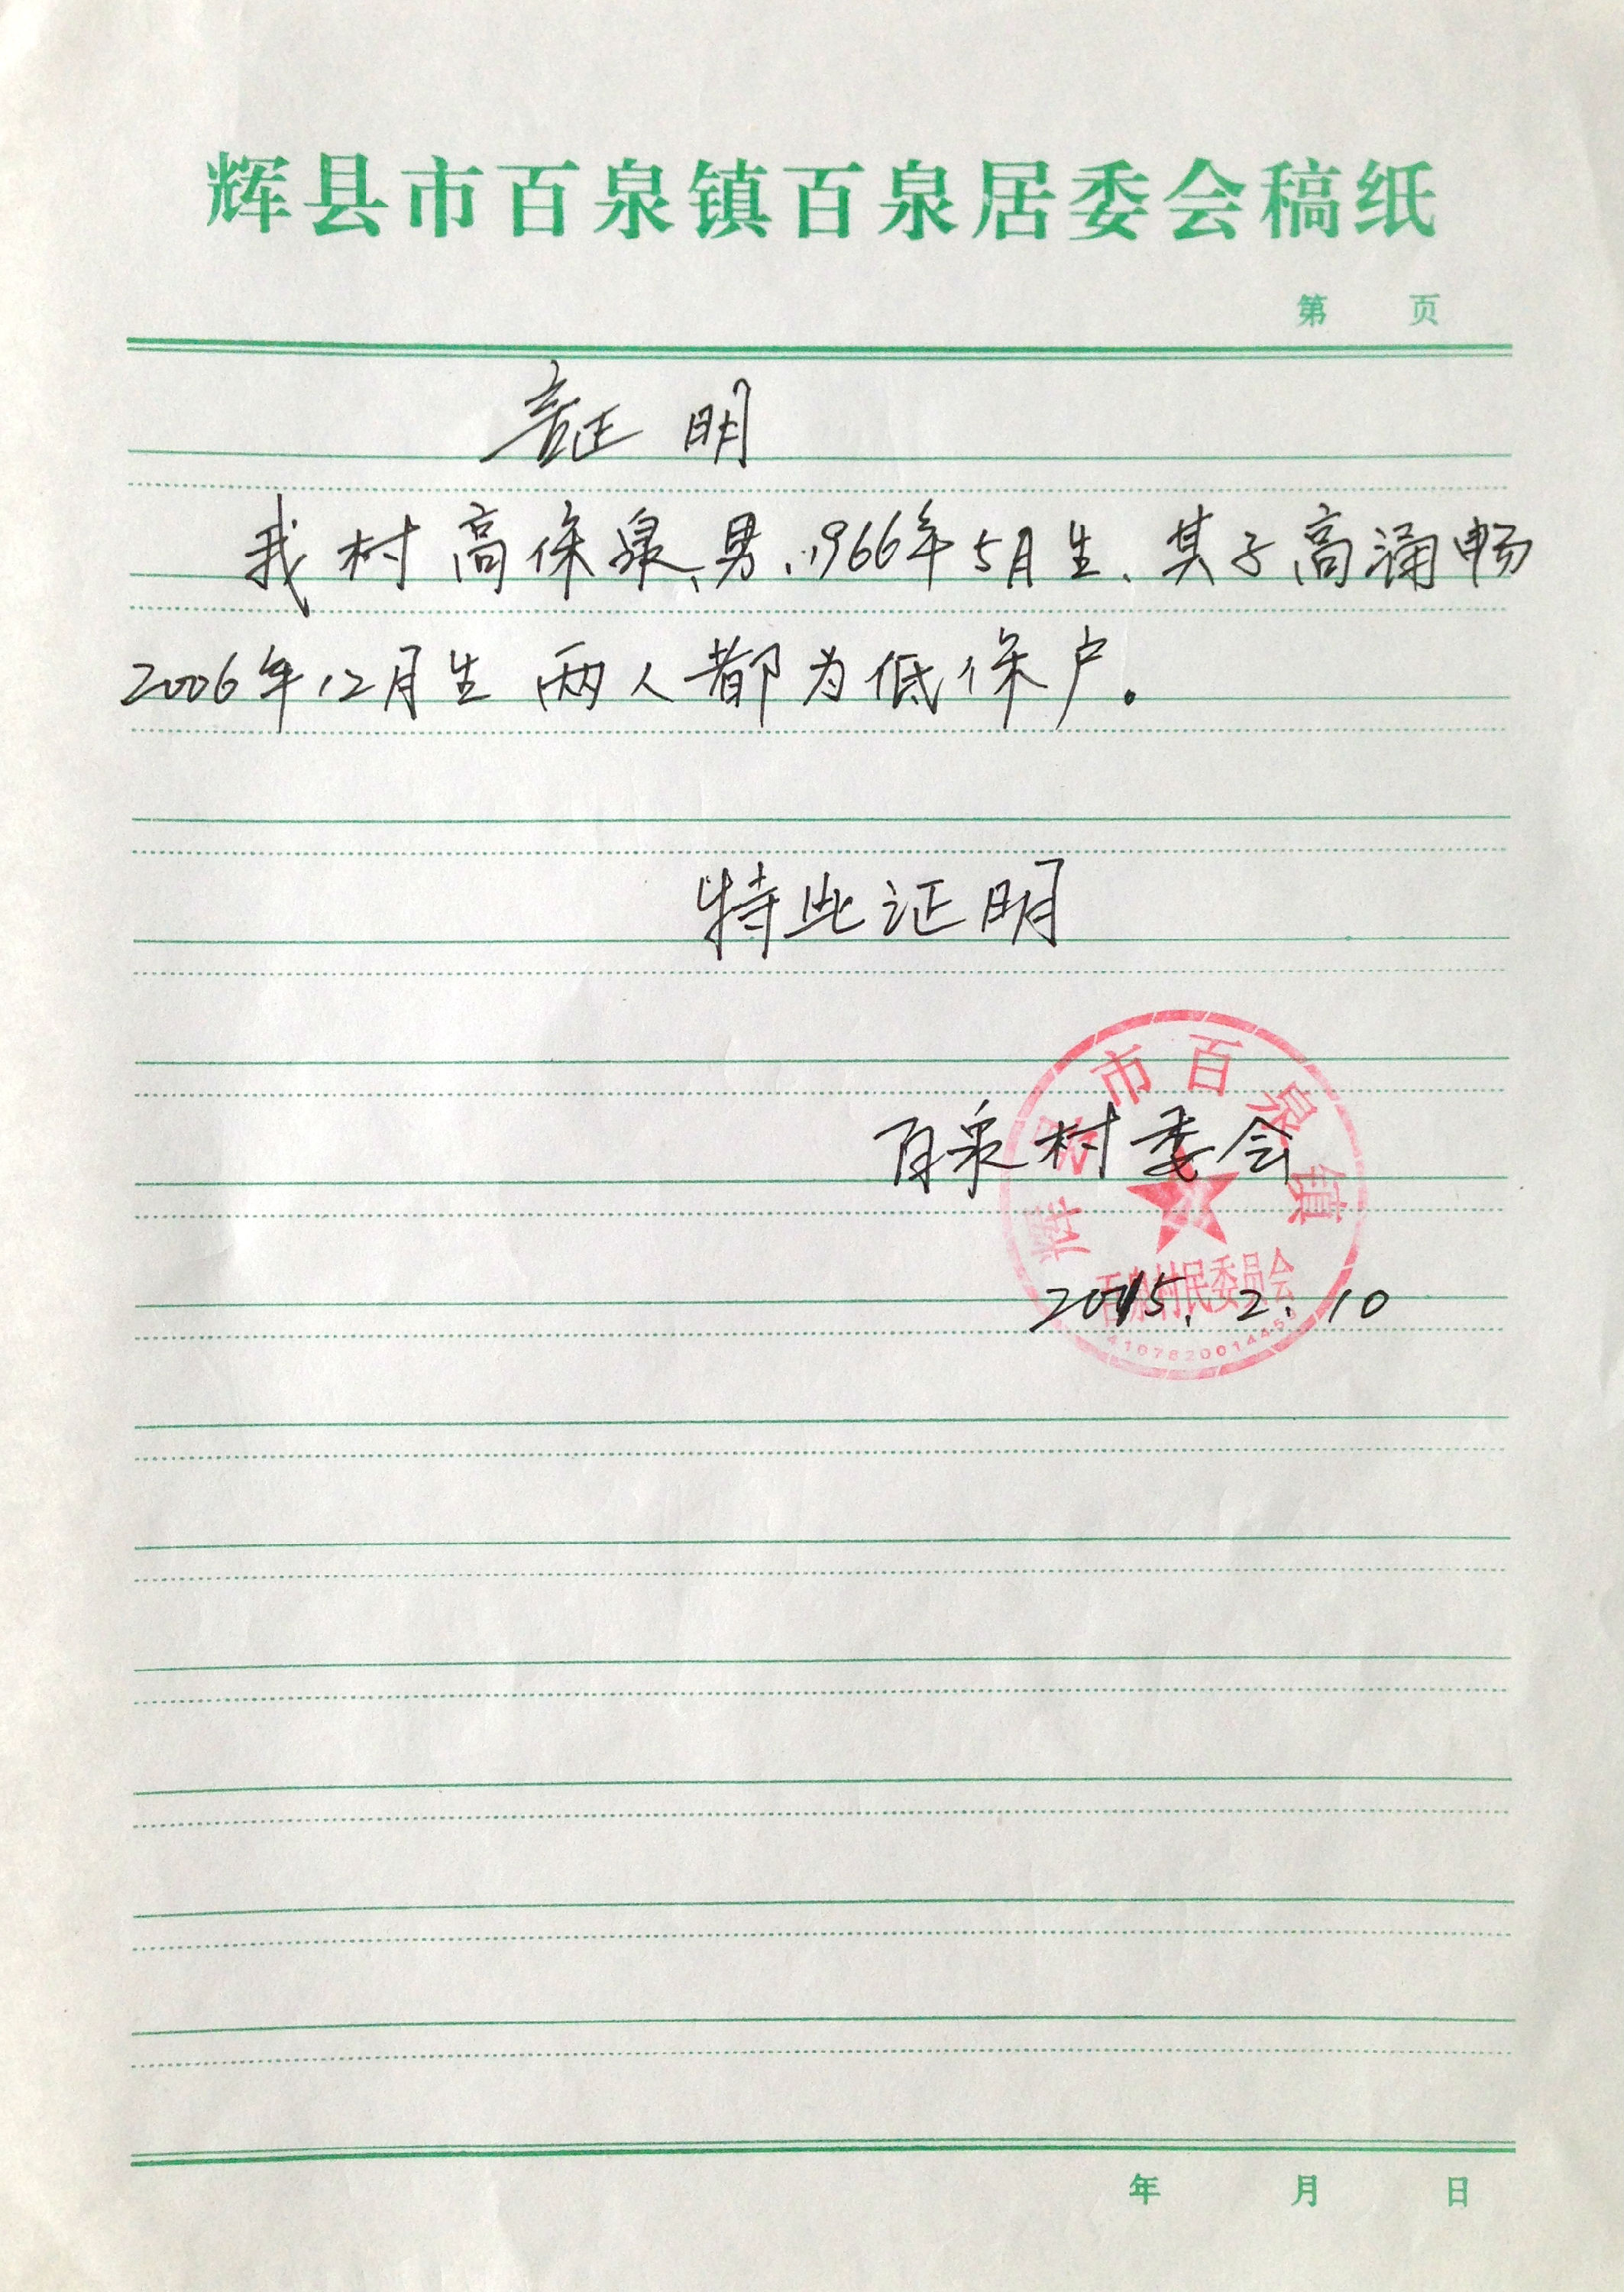 辉县市百泉镇百泉居委会稿纸
第 页
证明
我村高保泉、男、1966年5月生、其子高涌畅
2006年12月生 两人都为低保户。
特此证明
辉县市百泉镇
百泉村委会
百泉村民委员会
2015. 2. 10
年 月 日